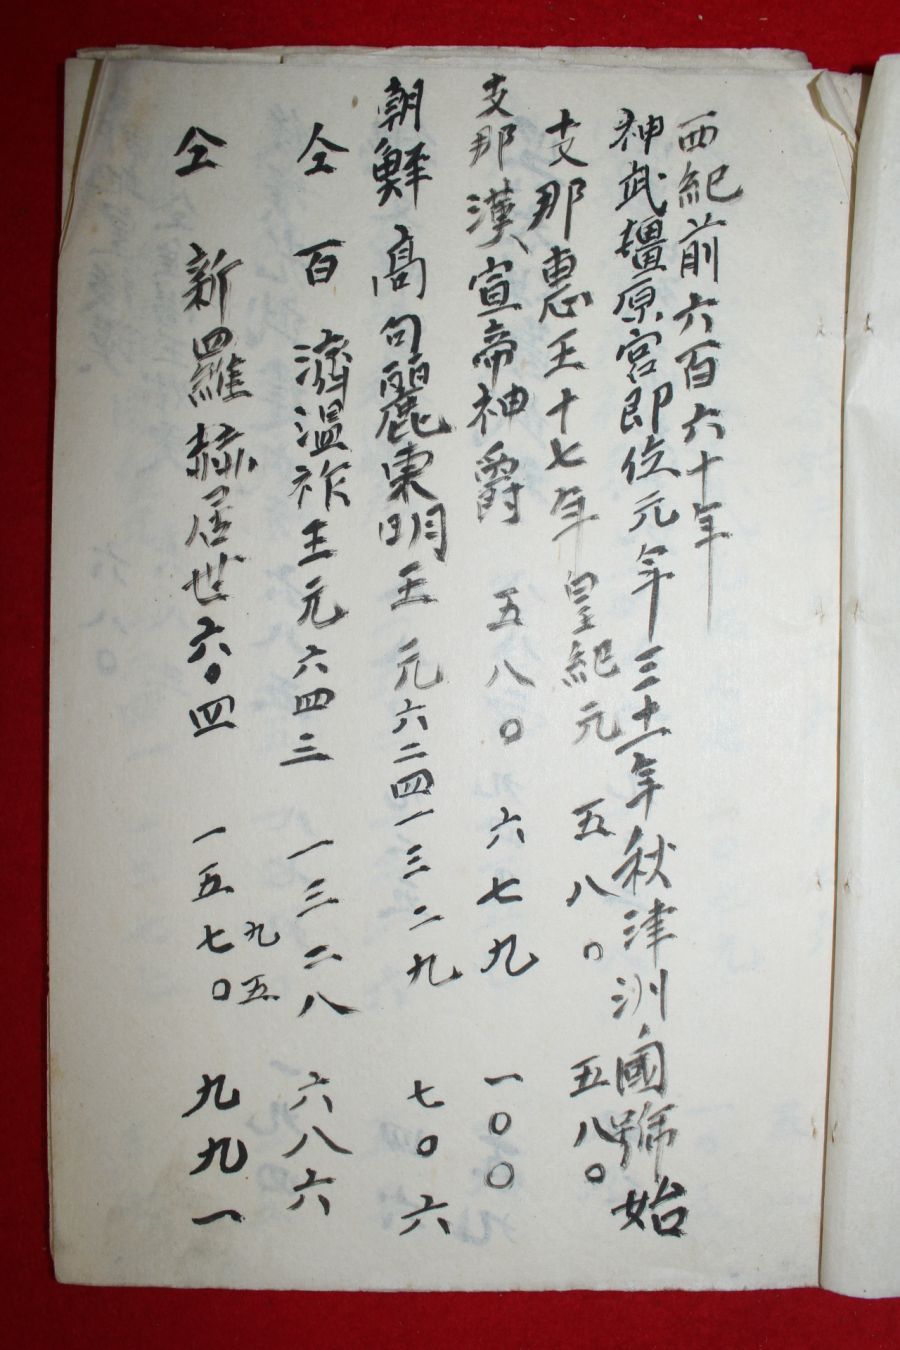 西紀前六百六十年
神武橿原宮即位元年三十一年秋津洲國號始
支那惠王十七年皇紀元 五八〇 五八〇
支那漢宣帝神爵 五八〇 六七九 一〇〇
朝鮮高句麗東明王元六二四 一三二九 七〇六
仝 百濟温祚王元六四三 一三二八 六八六
九五
仝 新羅赫居世六〇四 一五七〇 九九一